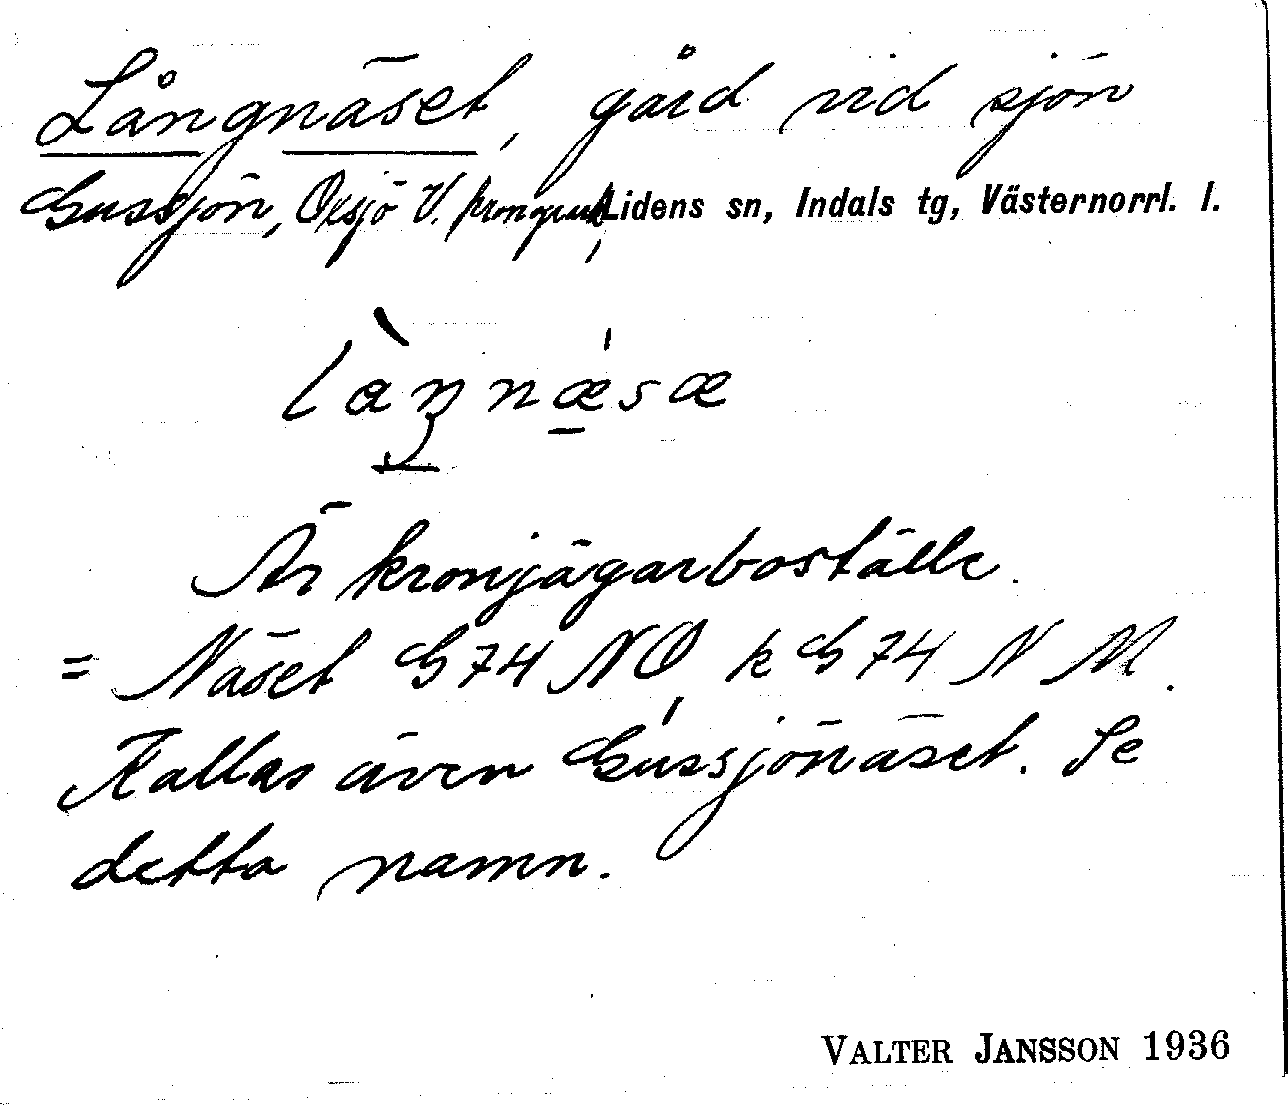 Långnäset, gård vid sjön
Gussjön, Oxsjö V. kronopark, Lidens sn, Indals tg, Västernorrl. l.
Är kronjägarboställe.
= Näset G 74 NO, k G 74 N M.
Kallas även Gussjönäset. Se
detta namn.
VALTER JANSSON 1936